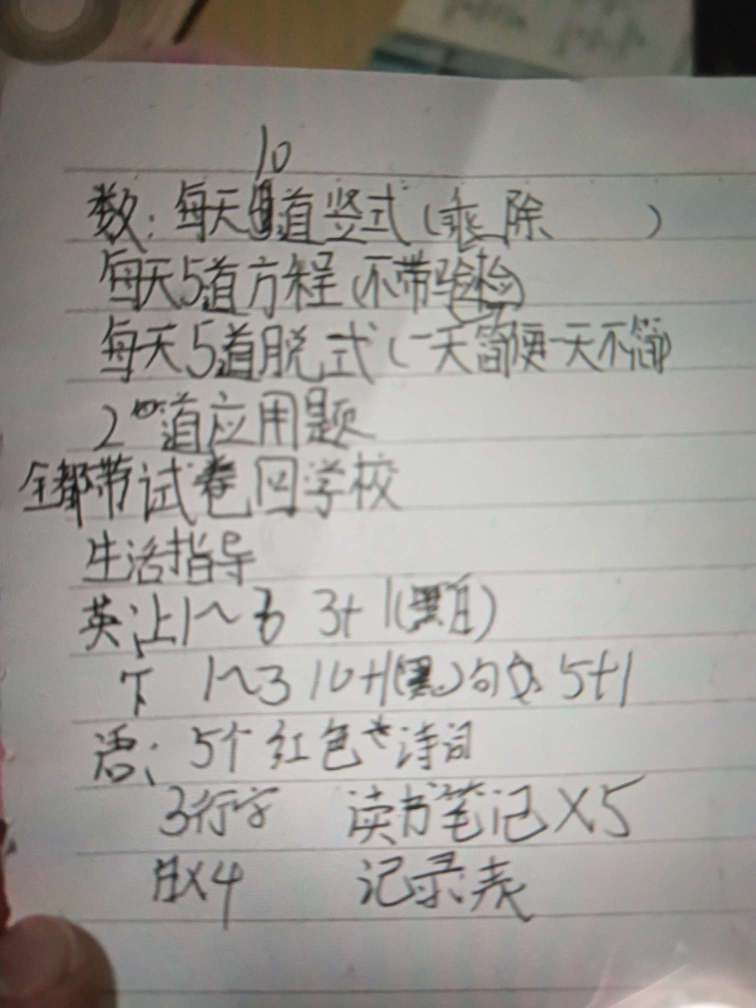 10
数：每天道竖式（乘除　　）
每天5道方程（不带验检）
每天5道脱式（一天简便一天不简）
2道应用题
全都带试卷回学校
生活指导
英：上1～6 3+1（黑）
下 1～3 10+1（黑）句 5+1
语：5个红色诗词
3行字 读书笔记×5
×4 记录表